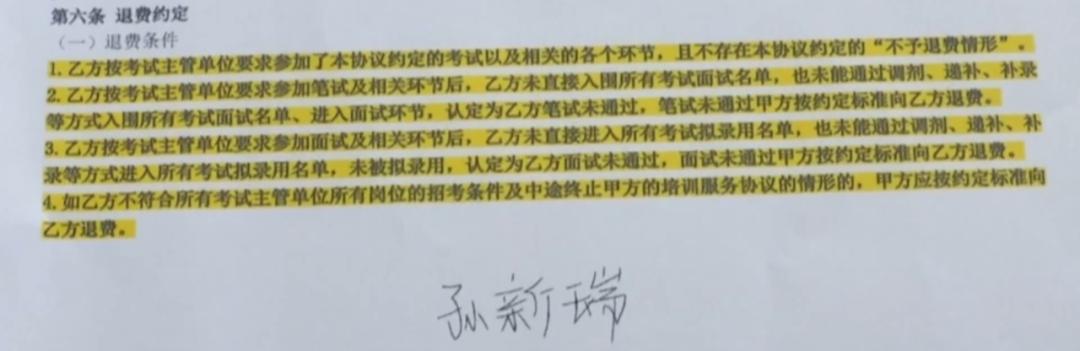 第六条 退费约定
（一）退费条件
1. 乙方按考试主管单位要求参加了本协议约定的考试以及相关的各个环节，且不存在本协议约定的“不予退费情形”。
2. 乙方按考试主管单位要求参加笔试及相关环节后，乙方未直接入围所有考试面试名单，也未能通过调剂、递补、补录
等方式入围所有考试面试名单、进入面试环节，认定为乙方笔试未通过，笔试未通过甲方按约定标准向乙方退费。
3. 乙方按考试主管单位要求参加面试及相关环节后，乙方未直接进入所有考试拟录用名单，也未能通过调剂、递补、补
录等方式进入所有考试拟录用名单，未被拟录用，认定为乙方面试未通过，面试未通过甲方按约定标准向乙方退费。
4. 如乙方不符合所有考试主管单位所有岗位的招考条件及中途终止甲方的培训服务协议的情形的，甲方应按约定标准向
乙方退费。
孙新瑞